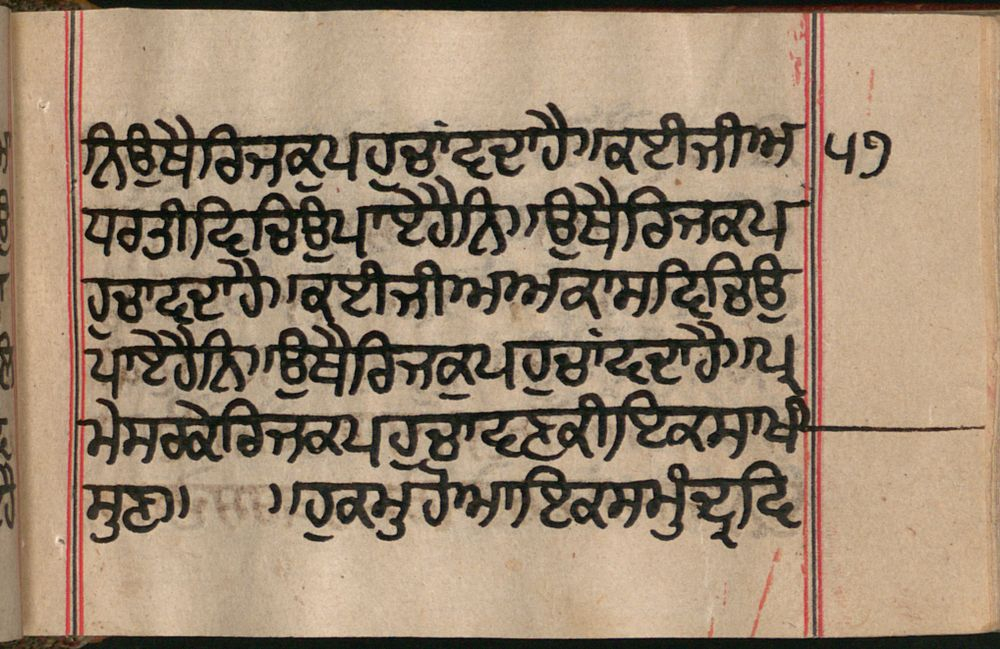 ਨਿਉਥੈਰਿਜਕੁਪਹੁਚਾਂਵਦਾਹੈ॥ਕਈਜੀਅ ੫੭
ਧਰਤੀਵਿਚਿਉਪਾਏਹੈਨਿ॥ਉਥੈਰਿਜਕਪ
ਹੁਚਾਵਦਾਹੈ॥ਕਈਜੀਅਅਕਾਸਵਿਚਿਉ
ਪਾਏਹੈਨਿ॥ਉਥੈਰਿਜਕੁਪਹੁਚਾਂਵਦਾਹੈ॥ਪ੍ਰ
ਮੇਸਰਕੇਰਿਜਕਪਹੁਚਾਵਣਕੀਇਕਸਾਖੀ
ਸੁਣ॥ ॥ਹੁਕਮੁਹੋਆਇਕਸਮੁੰਦ੍ਰਵਿ